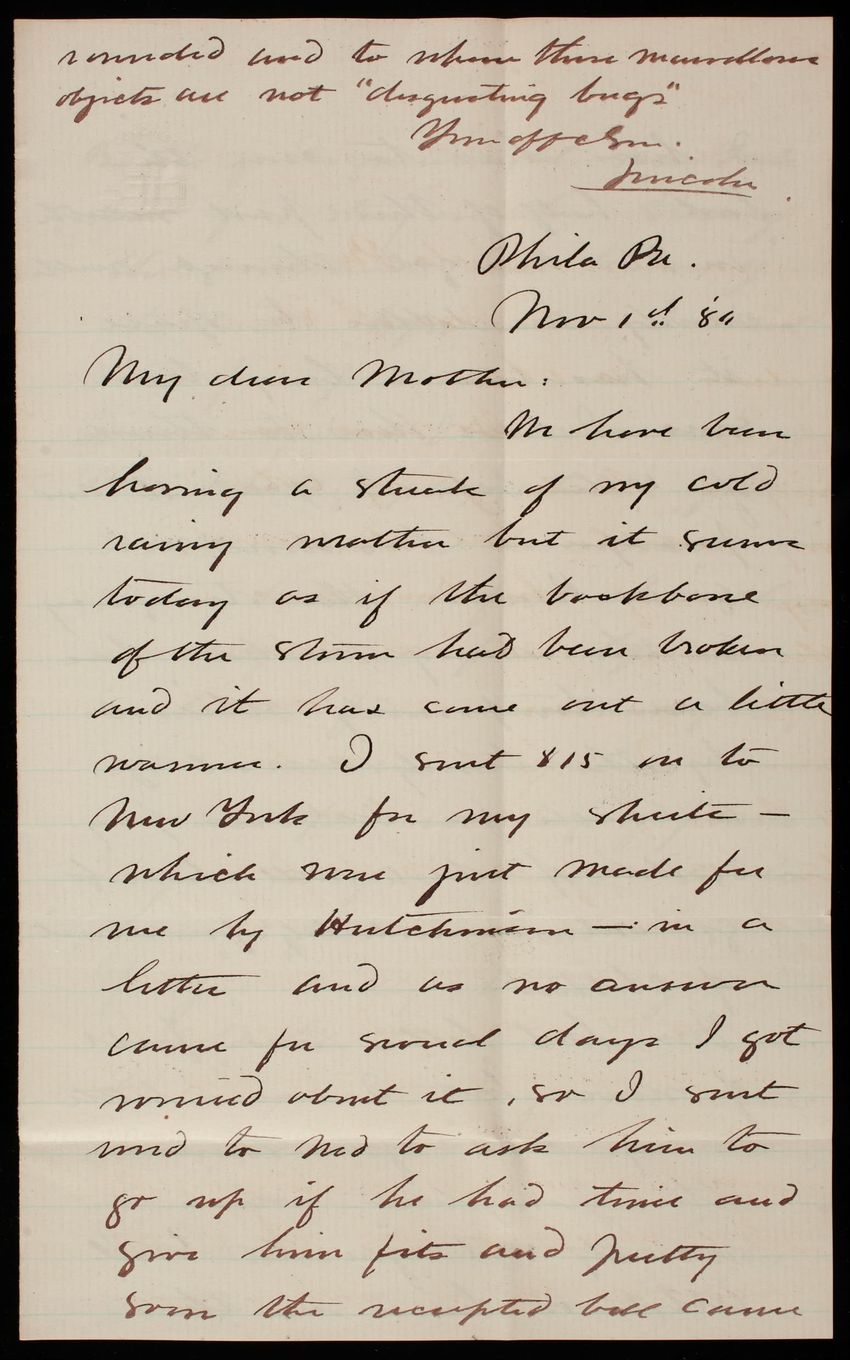 rounded and to whom these marvellous
objects are not "disgusting bugs"
Your aff. Son.
Lincoln
Phila Pa.
Nov 1st '80
My dear Mother:
We have been
having a streak of my cold
rainy weather but it seems
today as if the backbone
of the storm had been broken
and it has come out a little
warmer. I sent $15 on to
New York for my
which were just made for
me by Hutchinson — in a
letter and as no answer
came for several days I got
worried about it, so I sent
word to Ned to ask him to
go up if he had time and
give him fits and pretty
soon the receipted bill came